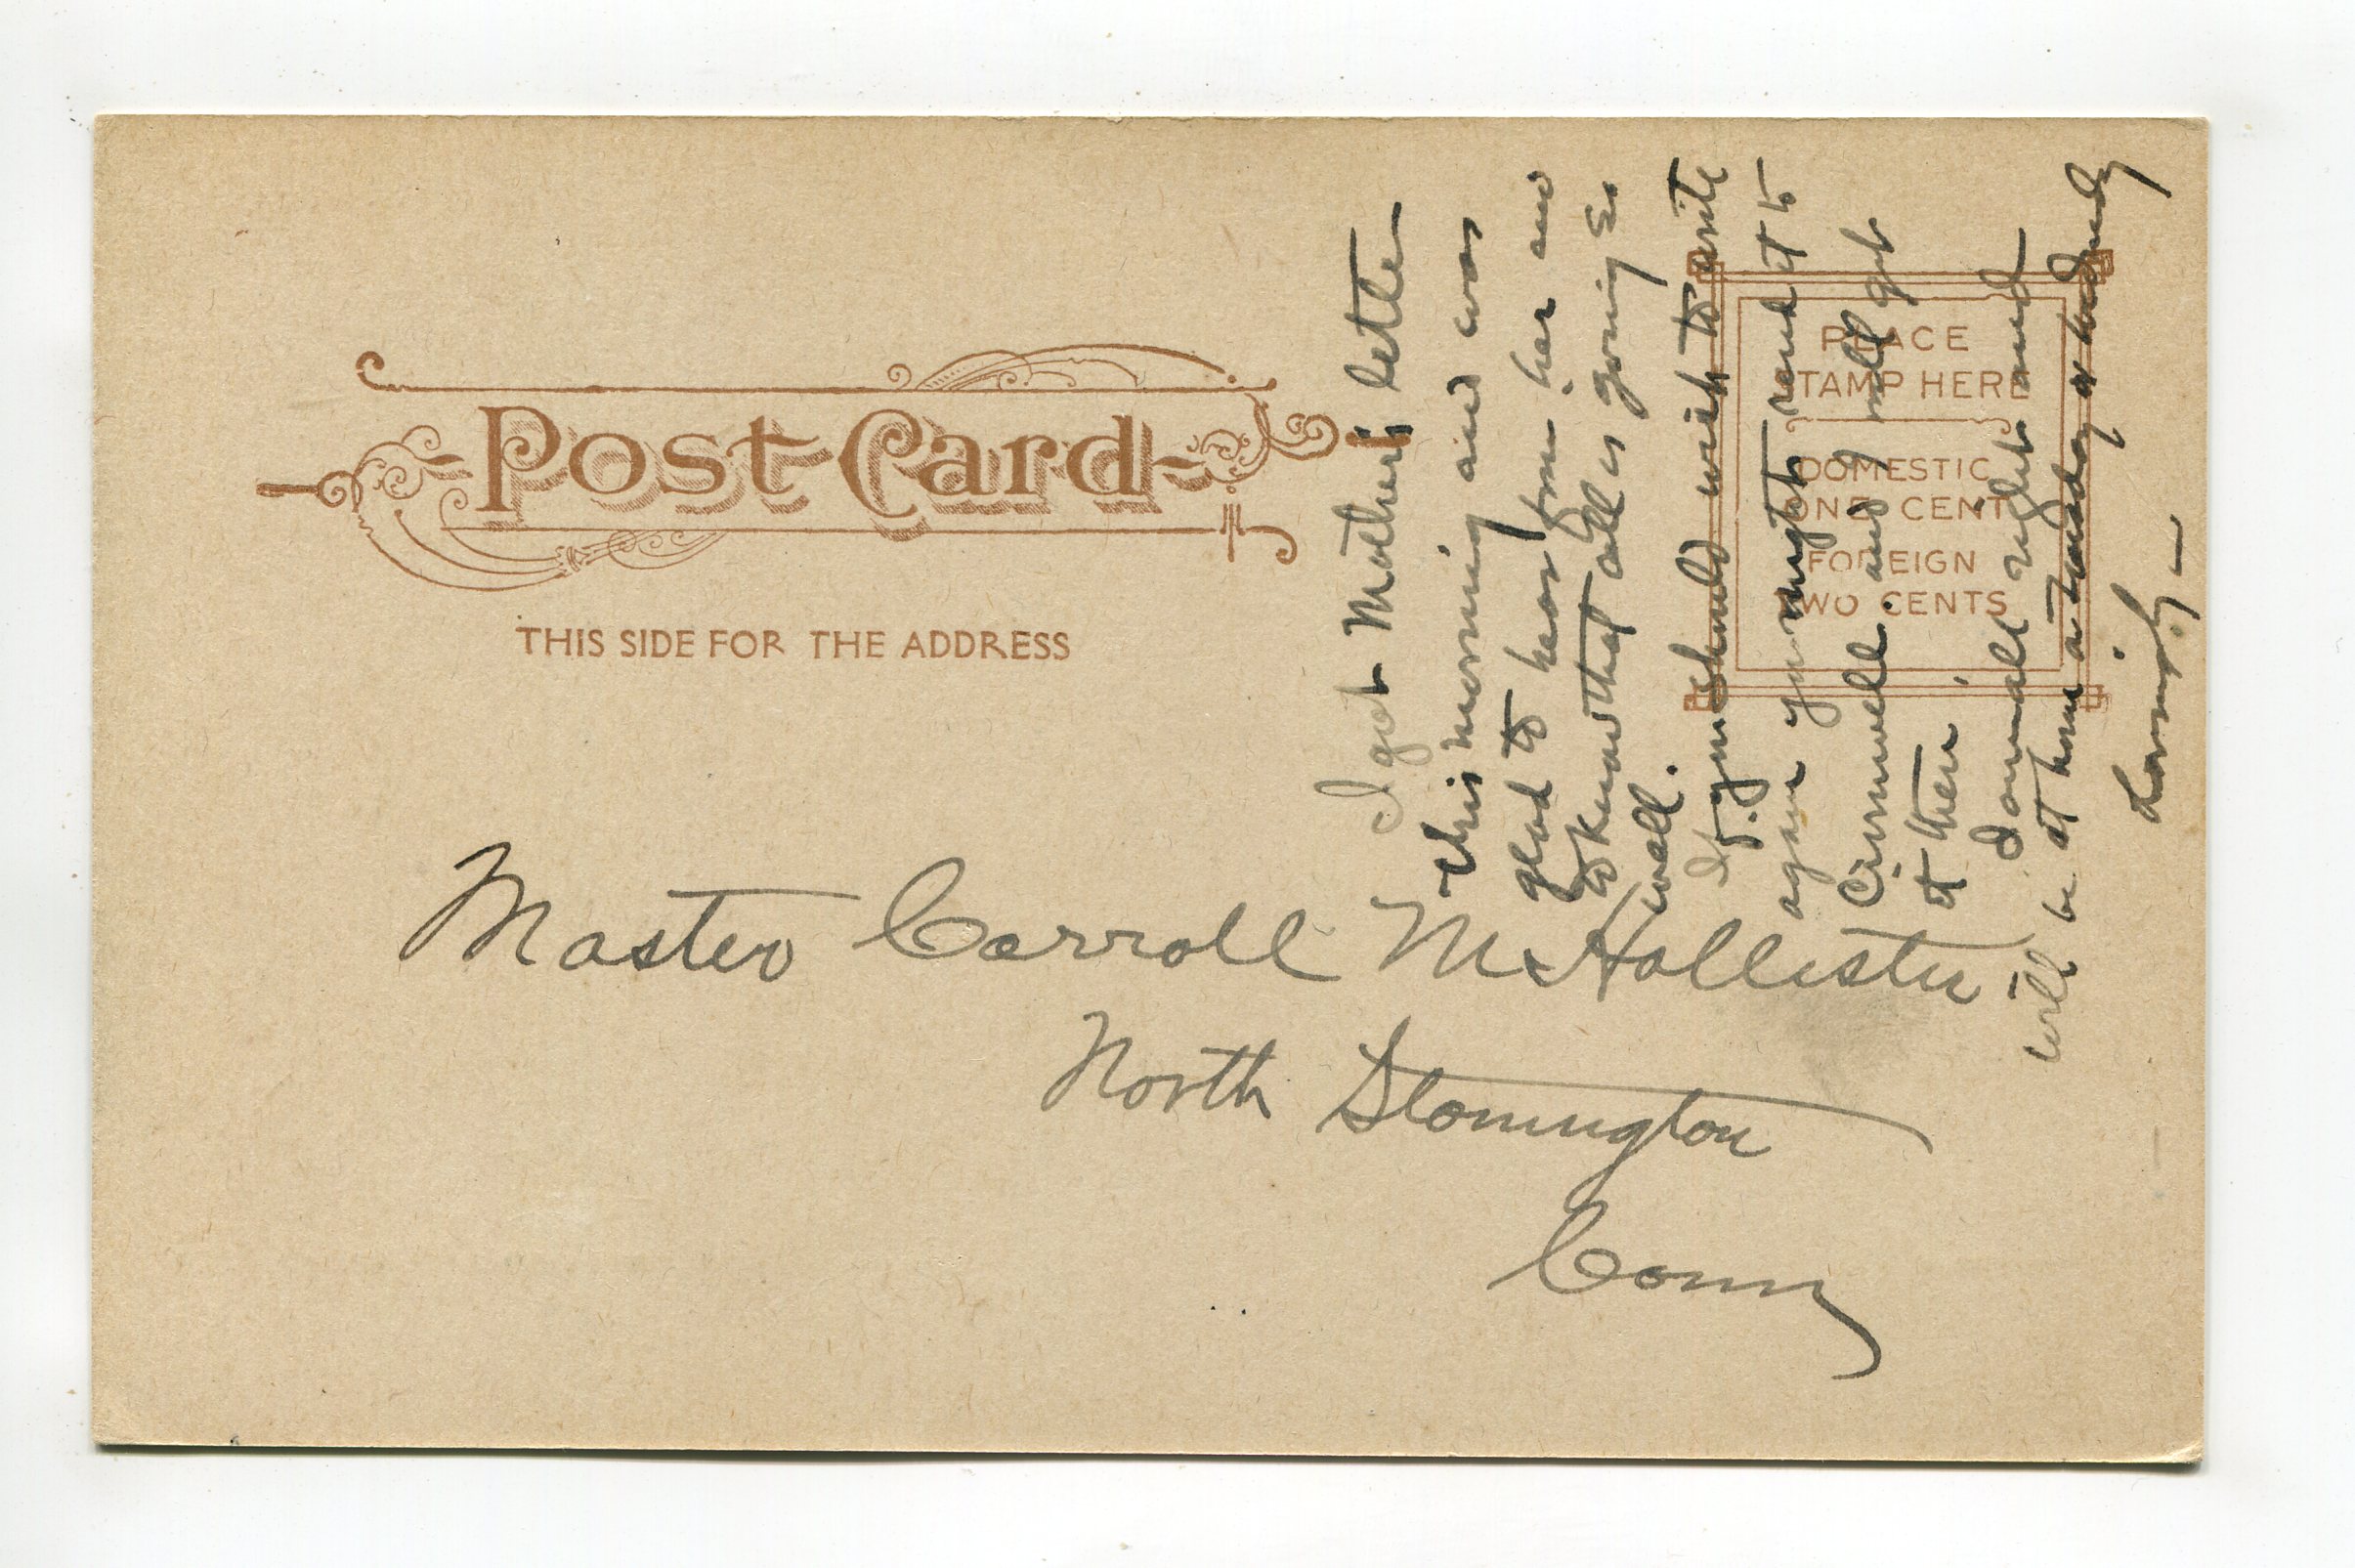 Post Card
THIS SIDE FOR THE ADDRESS
PLACE
STAMP HERE
DOMESTIC
ONE CENT
FOREIGN
TWO CENTS
Master Carroll McHollister
North Stonington
Conn
I got Mother's letter
this morning and was
glad to hear from her and
to know that all is going so
well.
If you should wish to write
again you might send it to
Cromwell and I will get
it there.
I am all right and
will be at home a Tuesday or Wednesday
Lovingly —